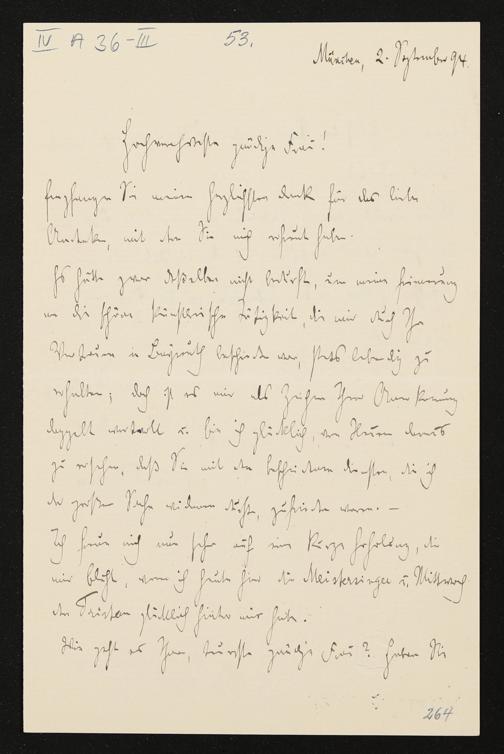 IV A 36-III
53.
München, 2. September 94.
Hochverehrteste gnädige Frau!
Empfangen Sie meinen herzlichsten Dank für das liebe
Andenken, mit dem Sie mich erfreut haben.
Es hätte zwar desselben nicht bedurft, um meine Erinnerung
an die schöne künstlerische Tätigkeit, die mir durch Ihr
Vertrauen in Bayreuth beschieden war, stets lebendig zu
erhalten; doch ist es mir als Zeichen Ihrer Anerkennung
doppelt wertvoll u. bin ich glücklich, von Neuem daraus
zu ersehen, daß Sie mit den bescheidenen Diensten, die ich
der großen Sache widmen durfte, zufrieden waren. —
Ich freue mich nun sehr auf eine kurze Erholung, die
mir blüht, wenn ich heute hier die Meistersinger u. Mittwoch
den Tristan glücklich hinter mir habe.
Wie geht es Ihnen, teuerste gnädige Frau? Haben Sie
264